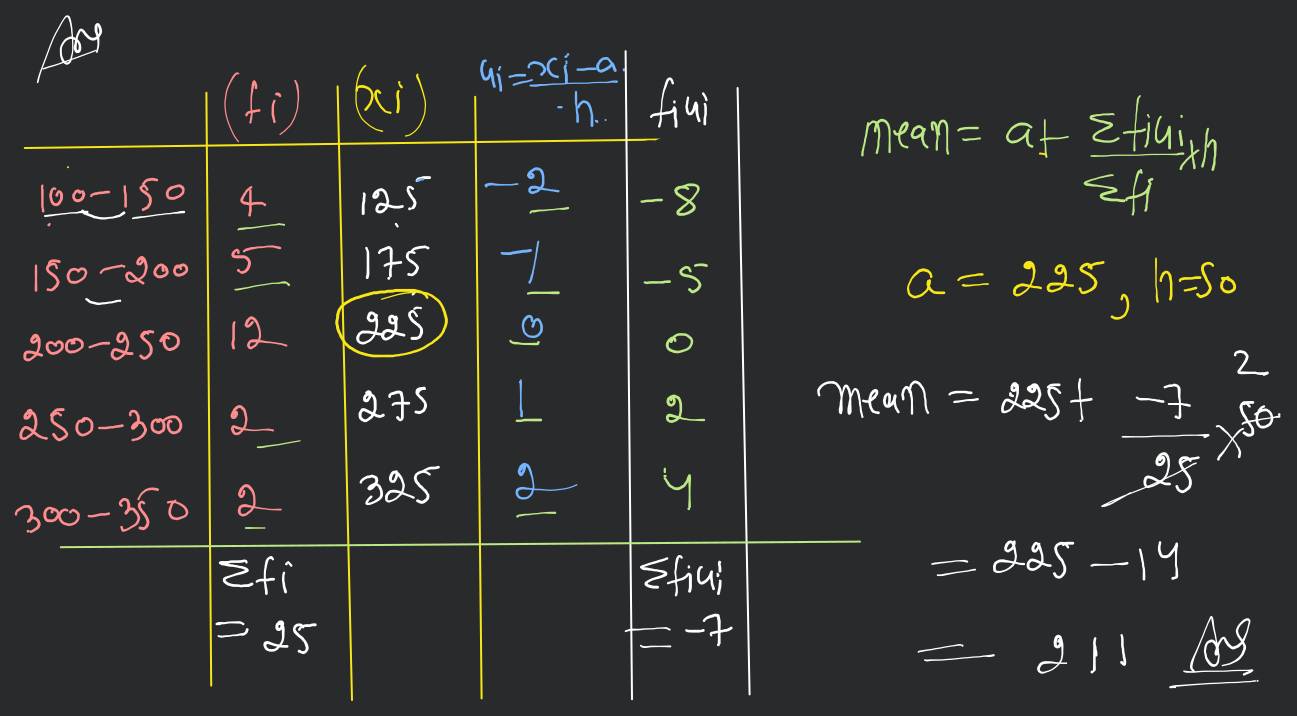 Ans
(fi) (xi) ui = xi - a / h fiui
100-150 4 125 -2 -8
150-200 5 175 -1 -5
200-250 12 225 0 0
250-300 2 275 1 2
300-350 2 325 2 4
Σfi = 25 Σfiui = -7
mean = a + Σfiui / Σfi × h
a = 225, h=50
mean = 225 + -7 / 25 × 50 2
= 225 - 14
= 211 Ans